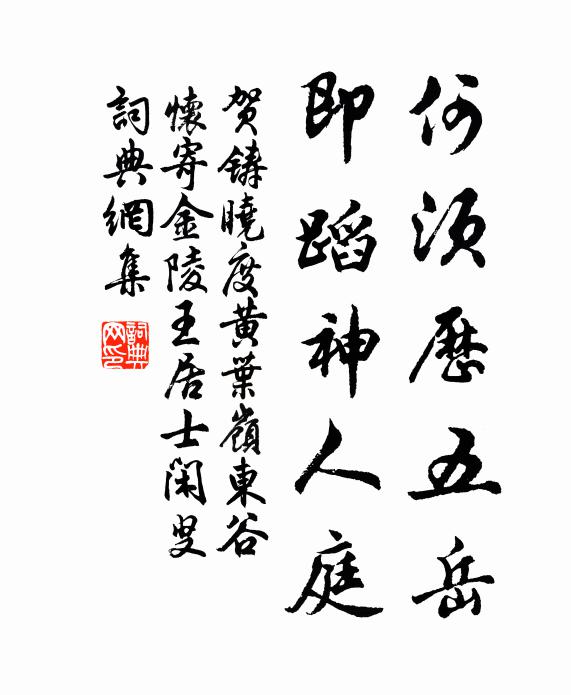 何须歷五岳
即蹈神人庭
贺鑄曉度黄葉嶺東谷
懷寄金陵王居士閑叟
詞典網集
詞典網印